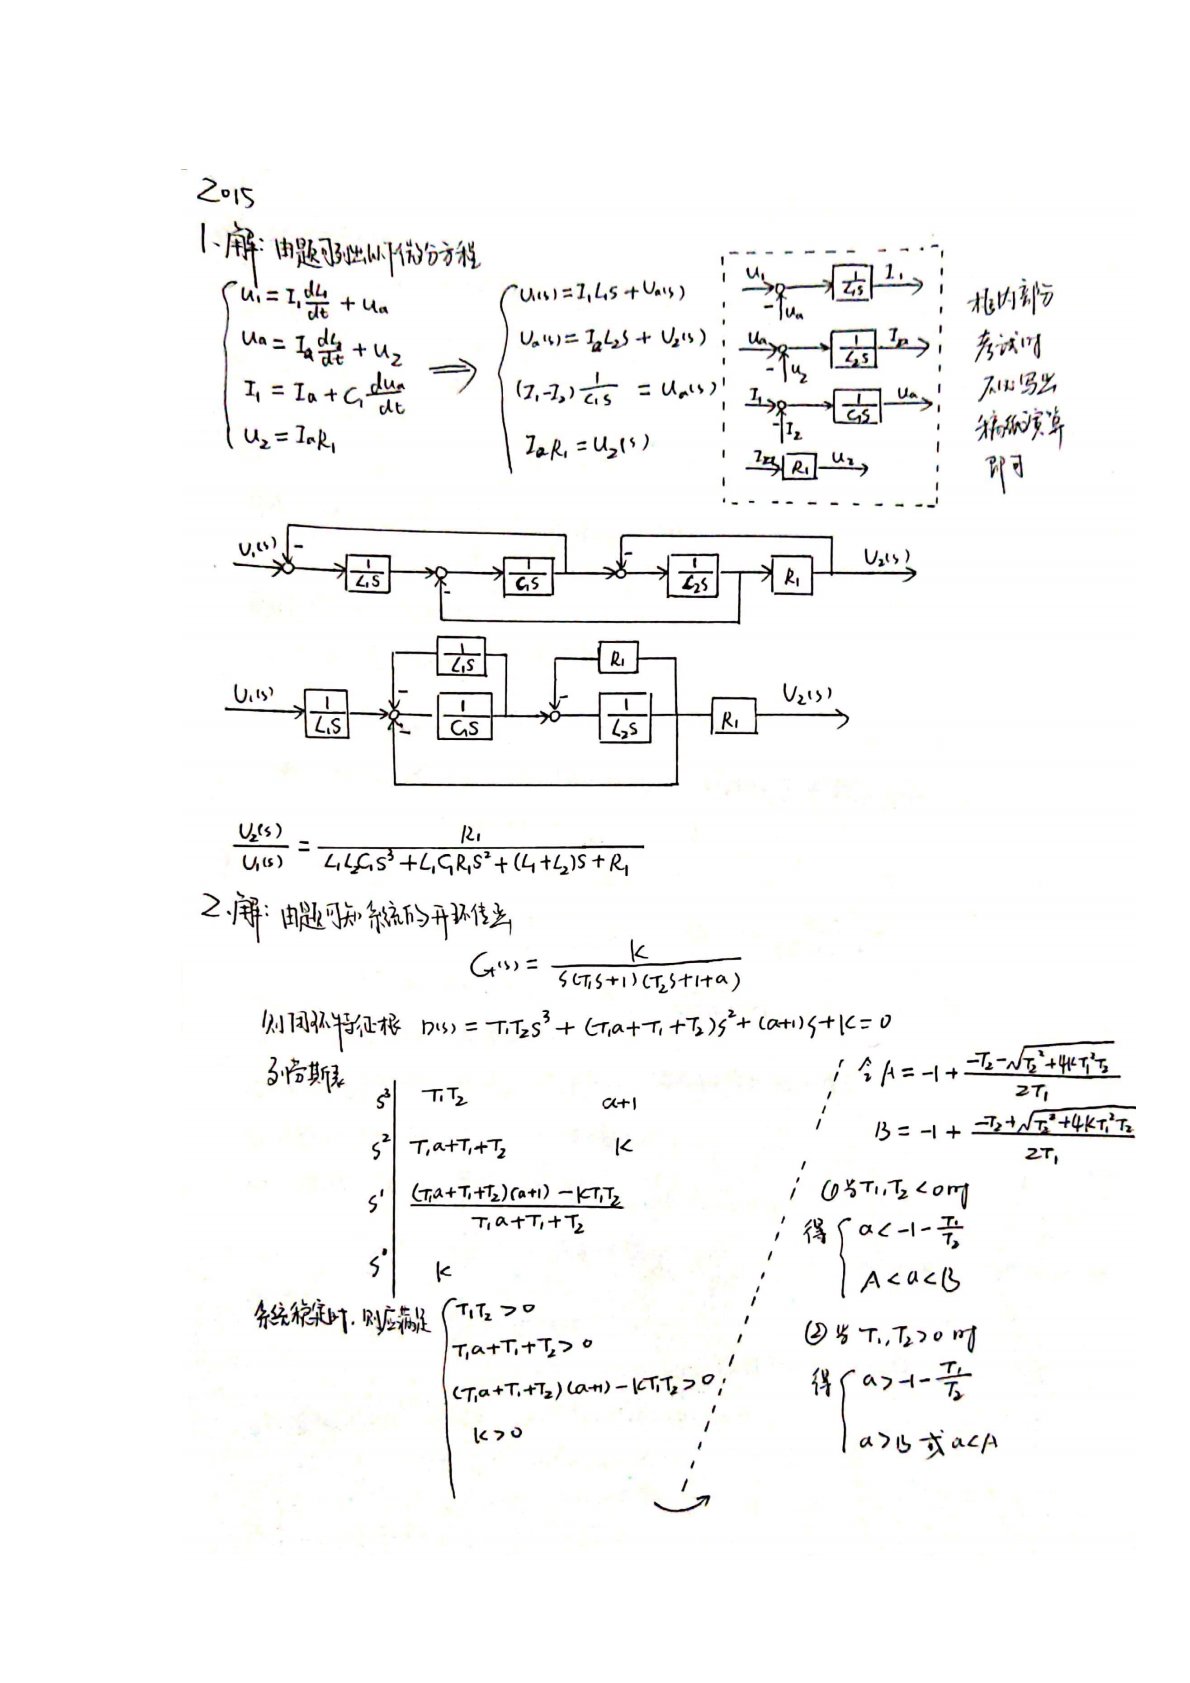 2015
1、解：由题可列出以下微分方程
u₁ = I₁ dL₁/dt + ua
ua = I₂ dL₂/dt + u₂
I₁ = Ia + C₁ dua/dt
u₂ = IaR₁
⇒
U₁(s) = I₁L₁s + Ua(s)
Ua(s) = I₂L₂s + U₂(s)
(I₁-I₂) 1/C₁s = Ua(s)
I₂R₁ = U₂(s)
u₁ - ua 1/L₁s I₁
ua - u₂ 1/L₂s I₂
I₁ - I₂ 1/C₁s ua
I₂ R₁ u₂
框内部分
考试时
不必写出
稿纸演算
即可
U₁(s) - 1/L₁s - 1/C₁s - 1/L₂s R₁ U₂(s)
1/L₁s R₁
U₁(s) 1/L₁s - - 1/C₁s - 1/L₂s R₁ U₂(s)
U₂(s)/U₁(s) = R₁/(L₁L₂C₁s³+L₁C₁R₁s²+(L₁+L₂)s+R₁)
2、解：由题可知系统的开环传函
G(s) = K/(s(T₁s+1)(T₂s+1+a))
则闭环特征根 D(s) = T₁T₂s³ + (T₁a+T₁+T₂)s² + (a+1)s + K = 0
列劳斯表
s³ T₁T₂ a+1
s² T₁a+T₁+T₂ K
s¹ ((T₁a+T₁+T₂)(a+1) - KT₁T₂)/(T₁a+T₁+T₂)
s⁰ K
系统稳定时，则应满足
T₁T₂ > 0
T₁a+T₁+T₂ > 0
(T₁a+T₁+T₂)(a+1) - KT₁T₂ > 0
K > 0
令 A = -1 + (-T₂-√(T₂²+4KT₁²T₂))/2T₁
B = -1 + (-T₂+√(T₂²+4KT₁²T₂))/2T₁
①当T₁,T₂<0时
得 a < -1 - T₁/T₂
A < a < B
②当T₁,T₂>0时
得 a > -1 - T₁/T₂
a > B 或 a < A